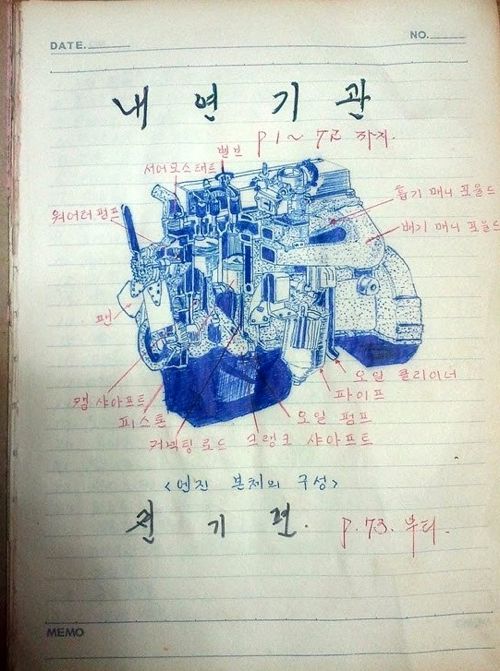 DATE.
NO.
내 연 기 관
P1~72 까지.
밸브
서어모스태트
흡기 매니 포울드
워어터 펌프
배기 매니 포울드
팬
오일 클리이너
캠 샤아프트
파이프
피스톤
오일 펌프
커넥팅 로드
크랭크 샤아프트
<엔진 본체의 구성>
전 기 편.
P.73. 부터.
MEMO